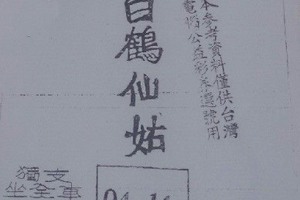 本參考資料僅供台灣
電腦公益彩券選號用
白鶴仙姑
獨支
坐全車